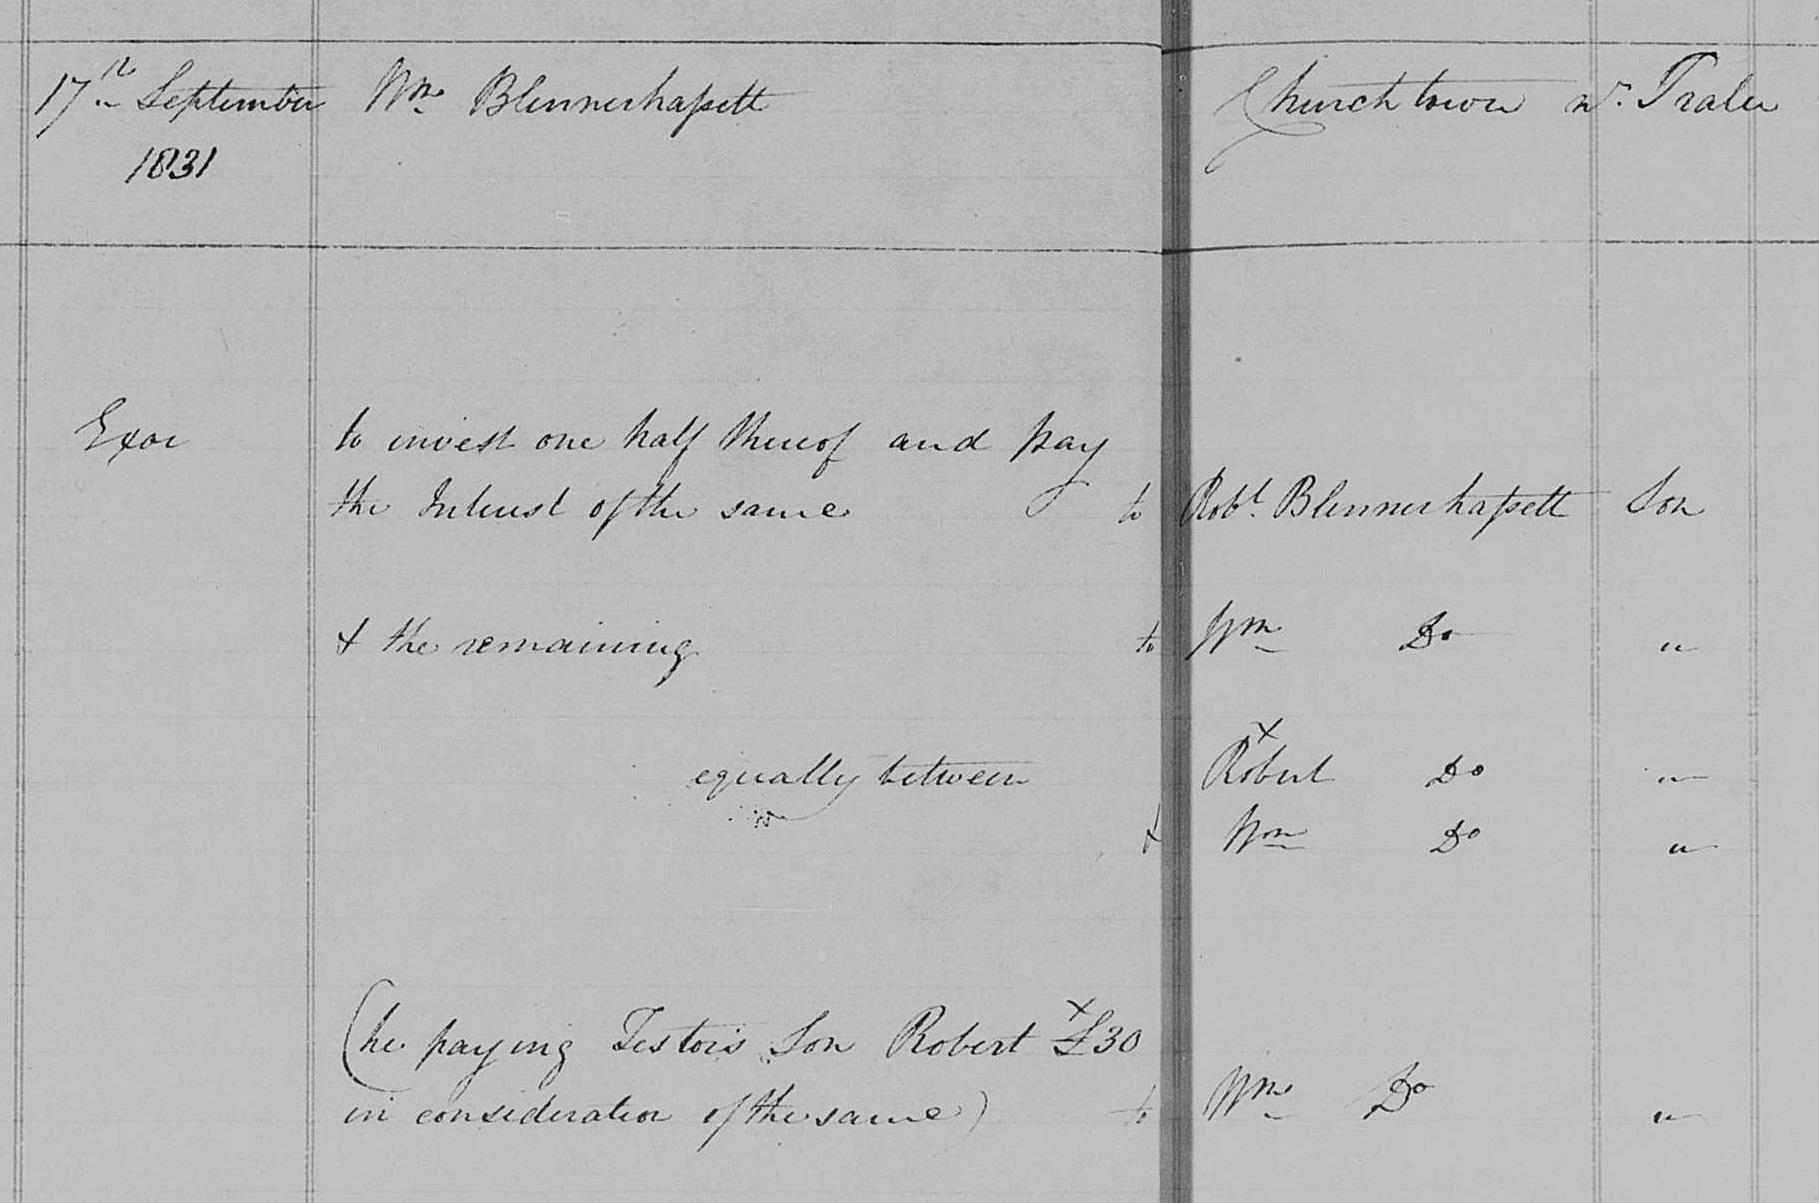 17th September Wm. Blennerhassett Churchtown nr. Tralee
1831
Exor to invest one half thereof and pay
the Interest of the same to Robt. Blennerhassett Son
+ the remaining to Wm Do "
equally between Robert Do "
+ Wm Do "
(he paying Testors Son Robert £30
in consideration of the same) to Wm Do "